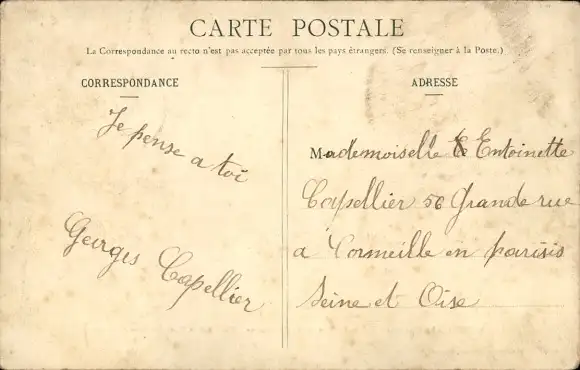 CARTE POSTALE
La Correspondance au recto n'est pas acceptée par tous les pays étrangers. (Se renseigner à la Poste.)
CORRESPONDANCE
Je pense a toi
Georges Capellier
ADRESSE
Mademoiselle Entoinette
Capellier 56 Grande rue
a Cormeille en parisis
Seine et Oise